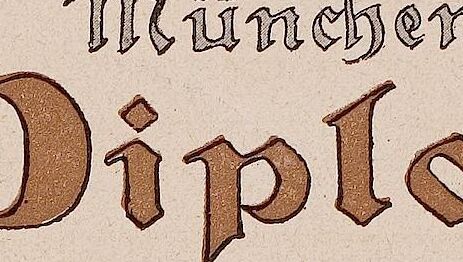 Münchener
Diplo